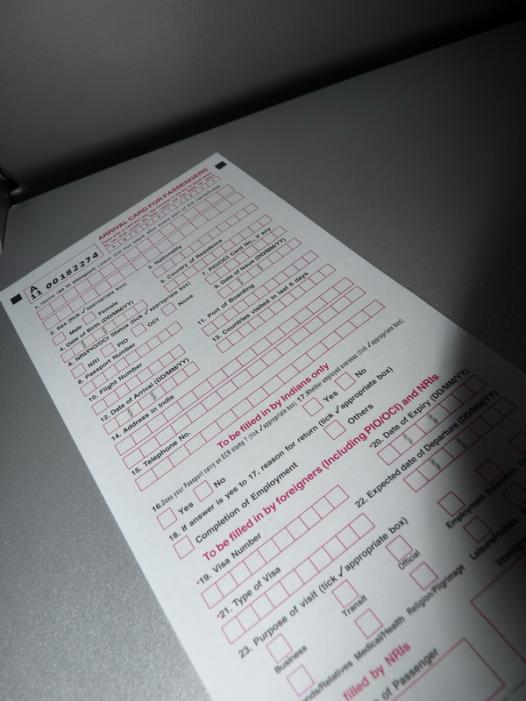 ARRIVAL CARD FOR PASSENGERS
A
11 00182274
1. Name (as in passport)
2. Sex (tick ✓ appropriate box)
3. Nationality
Male Female
4. Date of Birth (DD/MM/YY)
5. Country of Residence
6. NRI/PIO/OCI Status (tick ✓ appropriate box)
NRI PIO OCI None
7. PIO/OCI Card No., if any
8. Passport Number
9. Date of Issue (DD/MM/YY)
10. Flight Number
11. Port of Boarding
12. Date of Arrival (DD/MM/YY)
13. Countries visited in last 6 days
14. Address in India
15. Telephone No.
To be filled in by Indians only
16. Does your Passport carry an ECR stamp ? (tick ✓ appropriate box)
Yes No
17. Whether employed overseas (tick ✓ appropriate box)
Yes No
18. If answer is yes to 17. reason for return (tick ✓ appropriate box)
Completion of Employment Others
To be filled in by foreigners (Including PIO/OCI) and NRIs
*19. Visa Number
*20. Date of Expiry (DD/MM/YY)
*21. Type of Visa
22. Expected date of Departure (DD/MM/YY)
23. Purpose of visit (tick ✓ appropriate box)
Business Transit Official Employment
nds/Relatives Medical/Health Religion/Pilgrimage
filled by NRIs
of Passenger